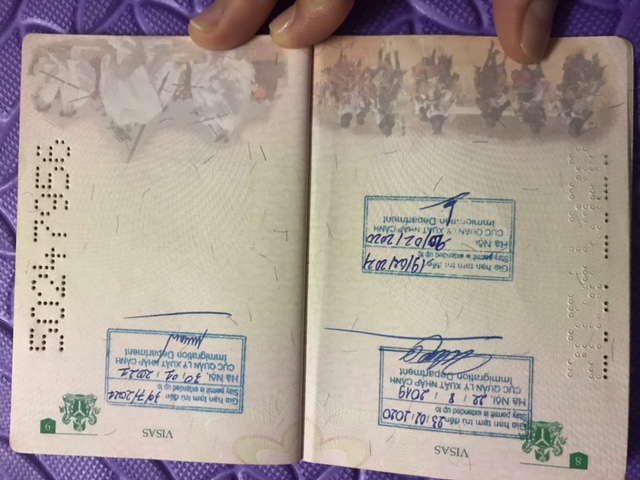 9
50247956
VISAS
Gia hạn tạm trú đến
Stay permit is extended up to
Hà Nội, 30/01/2021
CỤC QUẢN LÝ XUẤT NHẬP CẢNH
Immigration Department
8
VISAS
Gia hạn tạm trú đến 23/02/2020
Stay permit is extended up to
Hà Nội, 22/8/2019
CỤC QUẢN LÝ XUẤT NHẬP CẢNH
Immigration Department
Gia hạn tạm trú đến 19/02/2021
Stay permit is extended up to
Hà Nội, /02/2020
CỤC QUẢN LÝ XUẤT NHẬP CẢNH
Immigration Department